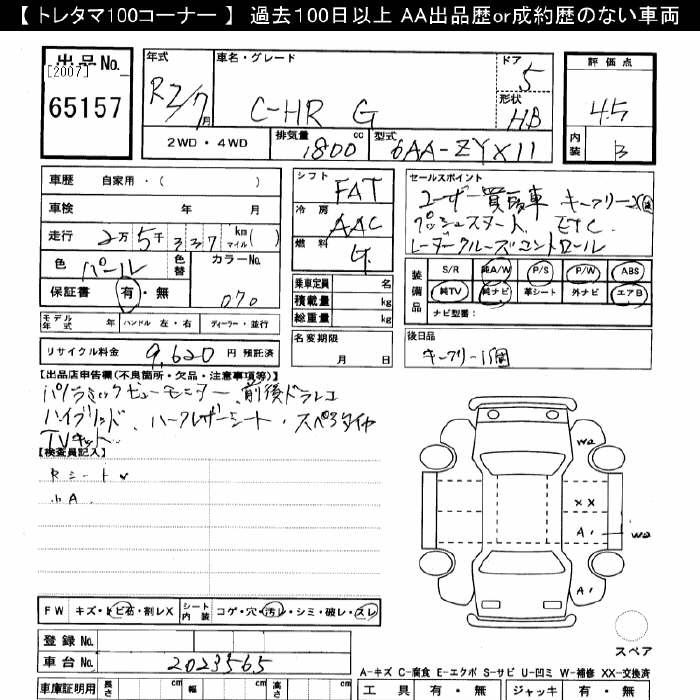 【 トレタマ100コーナー 】 過去100日以上 AA出品歴or成約歴のない車両
出品No.
[2007]
65157
年式 R2/7月
車名・グレード
C-HR G
ドア 5
形状 HB
評価点
4.5
内装 B
2WD・4WD
排気量 1800 cc
型式 6AA-ZYX11
車歴 自家用・( )
車検 年 月
走行 2万5千337 km マイル( )
色 パール 色替 カラーNo.
保証書 有・無 070
モデル年式 年 ハンドル 左・右 ディーラー・並行
リサイクル料金 9,620 円 預託済
シフト FAT
冷房 AAC
燃料
乗車定員 名
積載量 kg
総重量 kg
名変期限
月 日
セールスポイント
ユーザー買取車 キーフリーx2個
プッシュスタート ETC
レーダークルーズコントロール
装備品
S/R 純A/W P/S P/W ABS
純TV 純ナビ 革シート 外ナビ エアB
ナビ型番:
後日品
キーフリー1個
【出品店申告欄(不良箇所・欠品・注意事項等)】
パノラミックビューモニター 前後ドラレコ
ハイブリッド ハーフレザーシート・スペアタイヤ
TVキット
【検査員記入】
シート
小A
W2
XX
A1
W2
A1
スペア
FW キズ・トビ石・割レX シート内装 コゲ・穴・汚レ・シミ・破レ・スレ
登録No.
車台No. 2023565
A-キズ C-腐食 E-エクボ S-サビ U-凹ミ W-補修 XX-交換済
車庫証明用 長さ cm 幅 cm 高さ cm
工具 有・無 ジャッキ 有・無